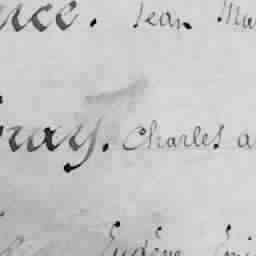 nce. Jean Ma
ray. Charles a
Eugène Emi